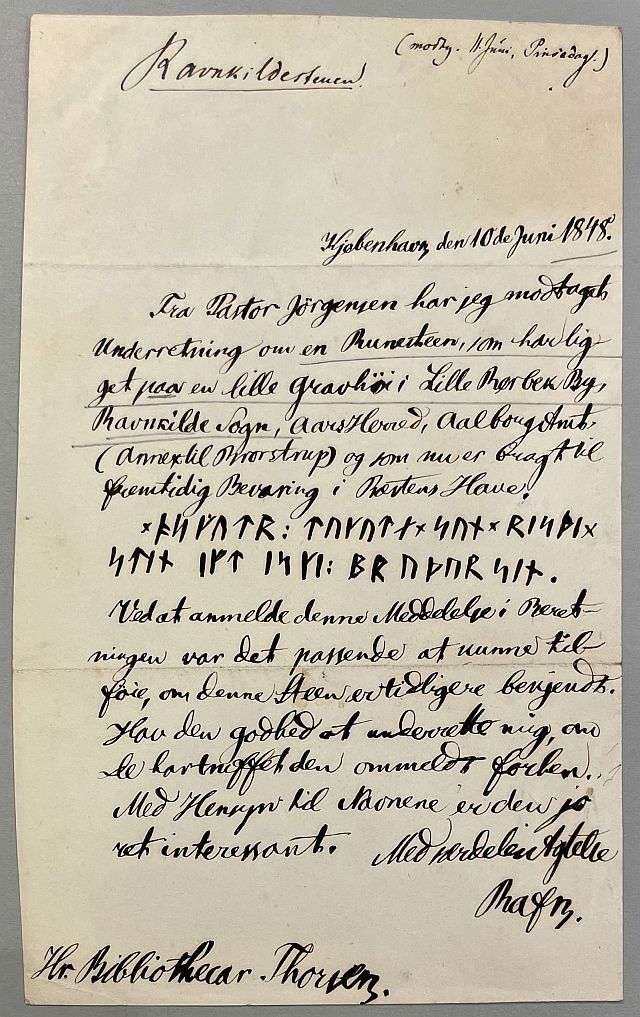 Ravnkildestenen.
(modtg. 11 Juni, Pinsedag.)
Kjøbenhavn, den 10de Juni 1848.
Fra Pastor Jörgensen har jeg modtaget
Underretning om en Runesteen, som har lig
get paa en lille Gravhöi i Lille Rørbek By,
Ravnkilde Sogn, Aars Herred, Aalborg Amt,
(Annex til Brorstrup) og som nu er bragt til
fremtidig Bevaring i Præstens Have.
᛬ᚯᛋᚴᚢᛏᚱ: ᛏᚢᚴᚢᛏᛅ᛬ᛋᚢᚾ᛬ᚱᛁᛋᚦᛁ᛬
ᛋᛏᛁᚾ ᛁᚠᛏ ᛁᛋᚴᛁ: ᛒᚱᚢᚦᚢᚱ ᛋᛁᚾ.
Ved at anmelde denne Meddelelse i Beret-
ningen var det passende at kunne til-
föie, om denne Steen er tidligere bekjendt.
Hav den Godhed at underrette mig, om
De har truffet den ommeldt forhen.
Med Hensyn til Navnene er den jo
ret interessant. Med særdeles Agtelse
Rafn.
Hr. Bibliothecar Thorsen.